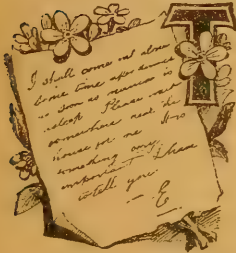 I shall come out alone
some time after dinner
as soon as mamma is
asleep Please wait
somewhere near the
house for me It is
something very
important I have
to tell you
— E
T